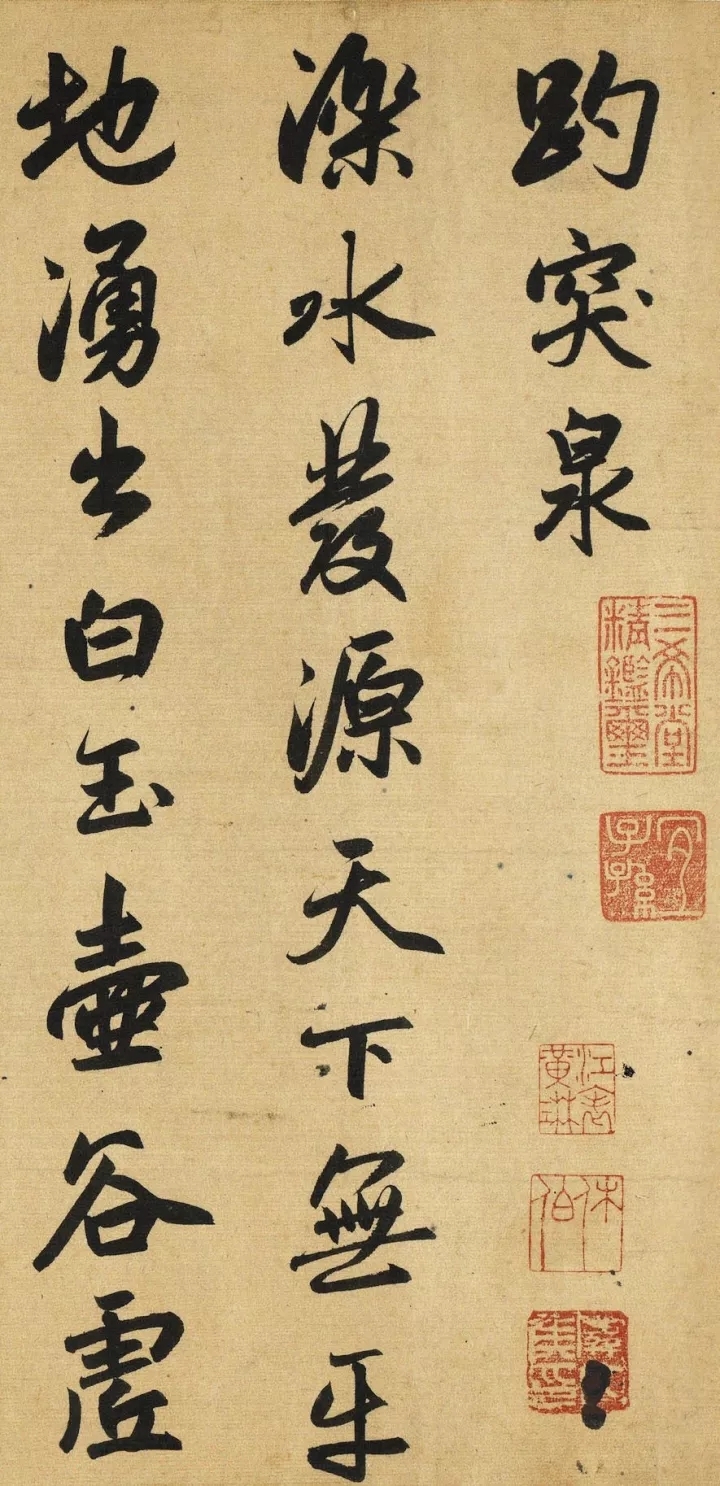 趵突泉
濼水發源天下無平
地湧出白玉壺谷虛
三希堂
精鑑璽
宜
子孫
江表
黃琳
休
伯